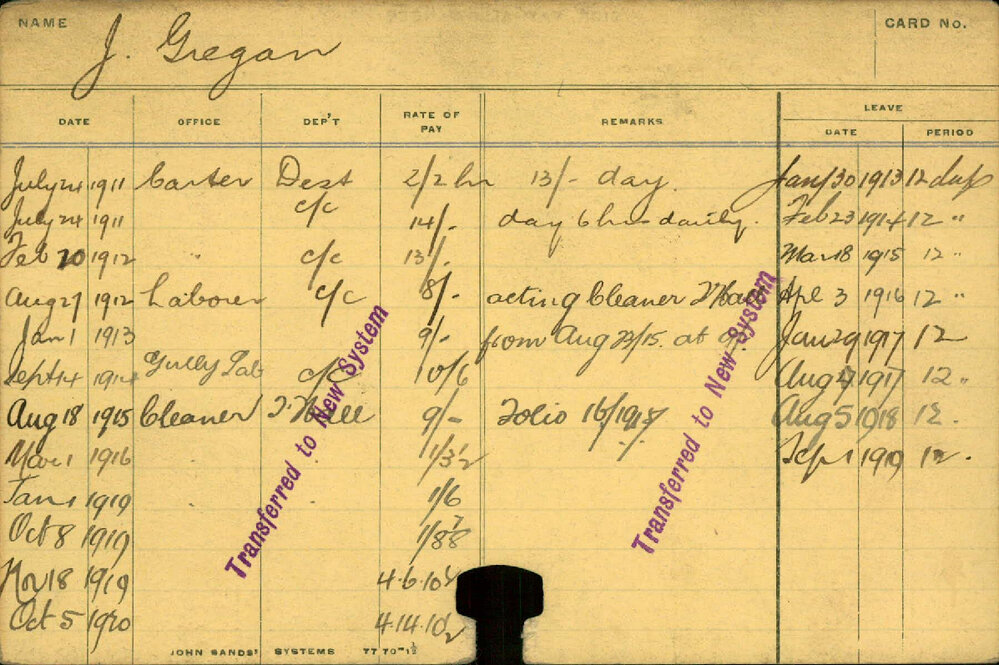 NAME J. Gregan CARD No.
LEAVE
DATE OFFICE DEP'T RATE OF PAY REMARKS DATE PERIOD
July 24 1911 Carter Dest 2/2 hr 13/- day. Jany 30 1913 12 days
July 24 1911 c/c 14/- day 6 hrs daily. Feb 23 1914 12 "
Feb 20 1912 " c/c 13/- Mar 18 1915 12 "
Aug 27 1912 Laborer c/c 8/- acting Cleaner Apl 3 1916 12 "
Jan 1 1913 9/- from Aug 23/15. at 9/- Jan 29 1917 12
Sept 14 1914 Gully Lab c/c 10/6 Aug 1917 12 "
Aug 18 1915 Cleaner T. Hall 9/- Folio 16/1917 Aug 5 1918 12.
Mar 1 1916 1/3½ Sep 1 1919 12.
Jan 1 1919 1/6
Oct 8 1919
Nov 18 1919 4.6.10½
Oct 5 1920 4.14.10½
Transferred to New System
Transferred to New System
JOHN SANDS' SYSTEMS